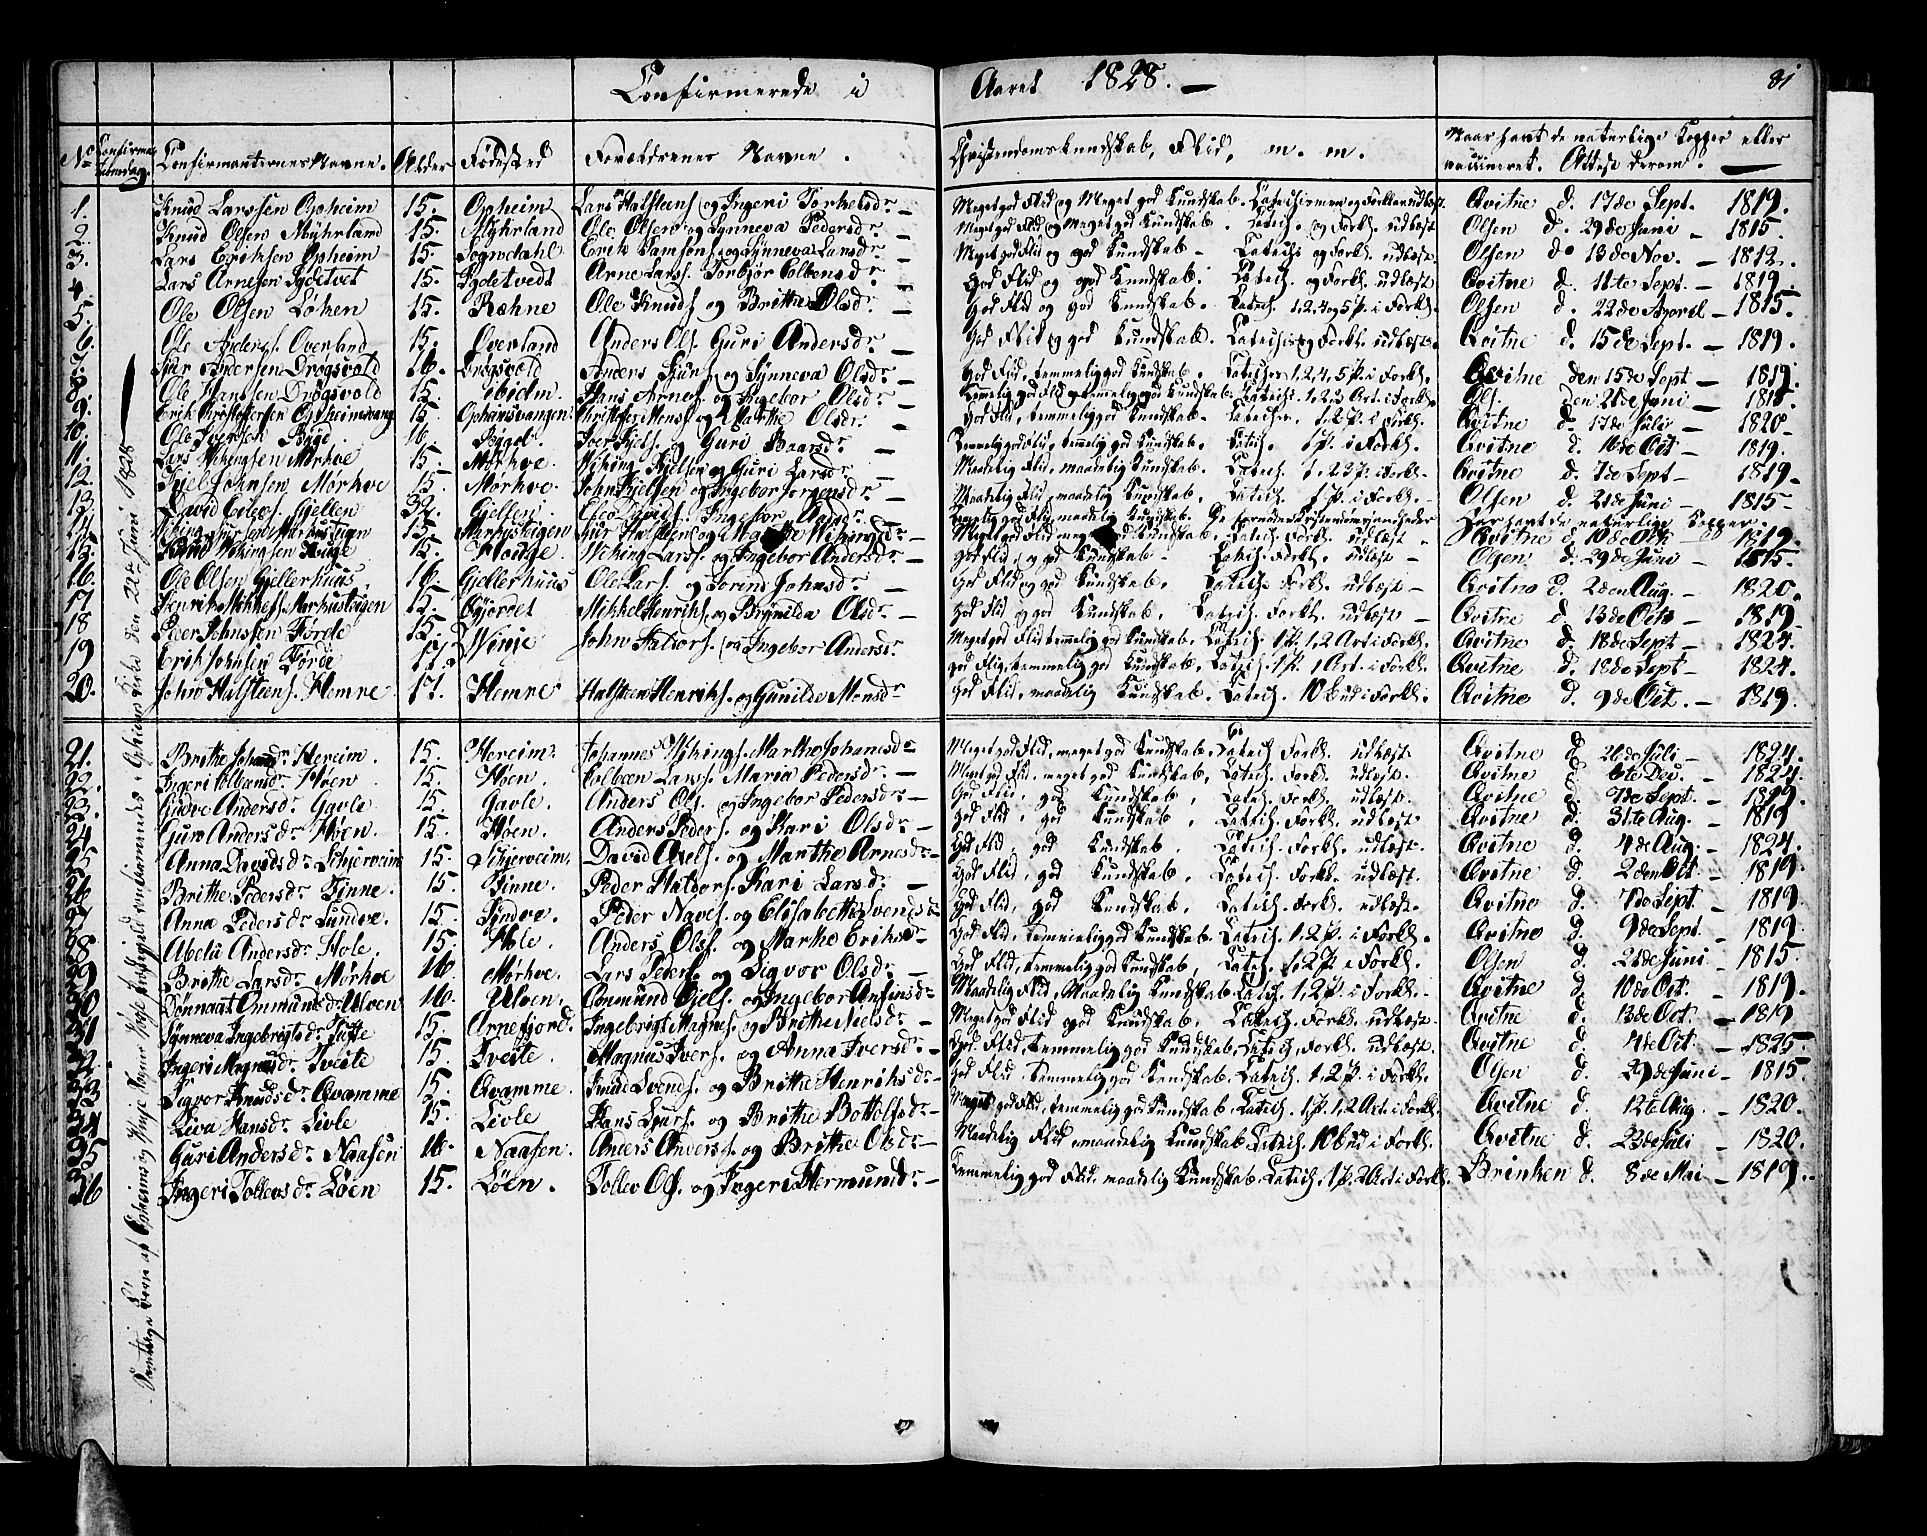 Confirmerede i Aaret 1828. 81
No Confirmationsdag. Confirmanternes Navne. Alder Födested Forældrenes Navne. Christendoms Kundskab, Flid, m. m. Naar havt de naturlige Kopper eller vaccineret. Attest derom.
1. Knud Larssen Opheim 15. Opheim Lars Halsteens. og Ingeri Torkelsdr. Meget god Flid og Meget god Kundskab. Qvitne d. 17de Sept. 1819.
2. Knud Olsen Myhrland 15. Myhrland Ole Olsen og Synneva Pedersdr. Meget god Flid og Meget god Kundskab. Catech. og Forkl. udlæst Olsen d. 29de Juni 1815.
3. Lars Eriksen Opheim 15. Sogndahl Erik Samsons. og Synneva Larsdr. Meget god Flid og god Kundskab Catechis og Forkl. udlæst Olsen d. 13de Nov. 1812.
4. Lars Arnesen Sydetvet 15. Sydetvedt Arne Larss. Torbjör Colbensdr. God Flid og god Kundskab. Catech. og Forkl. udlæst Qvitne d. 11te Sept. 1819.
5. Ole Olsen Løhen 15. Ræhne Ole Knuds. og Brithe Olsdr. God Flid og god Kundskab. Catech. 1,2,4,5 P. i Forkl. Olsen d. 22de April 1815.
6. Ole Anders. Overland 15. Overland Anders Ols. Guri Andersdr. God Flid og god Kundskab. Catechis og Forkl. udlæst Qvitne d. 15de Sept. 1819.
7. Sjur Andersen Drögsvold 16. Drögsvold Anders Sjurs. og Synneva Olsdr. God Flid, temmelig god Kundskab. 1,2,4,5 P. i Forkl. Qvitne den 15de Sept 1819.
8. Ole Hanssen Drögsvold 15. ibidm. Hans Arnes. og Ingebor Olsdr. Temmelig god Flid temmelig god Kundskab Catechis. i Forkl. Ols. den 21de Juni 1815
9. Erik Cristoffersen Opheimsvang 15. Opheimsvangen Marthe Olsdr. God Flid, temmelig god Kundskab. 1,2 P. i Forkl. Qvitne d. 17de Juli 1820
10. Ole Iversen Bygd. 16. Iver Kjels. og Guri Baarsdr. Temmelig god Flid, temmelig god Kundskab. Catech. 1 P. i Forkl. Qvitne d. 16de Oct 1819.
11. Lars Wikingsen Mörhve 15. Mörhve. Wiking Kjelsen og Guri Larsdr. Maadelig Flid, maadelig Kundskab. Catech. 1,2 P. i Forkl. Qvitne d. 7de Sept 1819
12. Kjel Johnsen Mörhve 15. Mörhve. John Kjelsen og Ingebor Jorgensdr. Maadelig Flid, maadelig Kundskab. Catech. 1 P. i Forkl. Olsen d. 21de Juni 1815
13. David Gjellen 32. Gjellen. Ingebor Olsdr. maadelig Kundskab. Har havt de naturlige Kopper.
14. Markustigen 15. Markustigen Sjur Halsteens. og Marthe Wikingsdr. Meget god Flid meget god Kundskab. Catech. Forkl. udlæst Qvitne d. 10de Octb. 1819.
15. Knud Wikingsen Hauge 15. Hauge Wiking Lars. og Ingebor Andersdr. God Flid og god Kundskab. Catech. Forkl. udlæst Olsen d. 29de Juni 1815.
16. Ole Olsen Gjellerhuus 16. Gjellerhuus Ole Lars. og Torine Johnsdr. God Flid og god Kundskab. Catech. Forkl. udlæst Qvitne d. 2den Aug. 1820.
17. Henrik Mikkels. Markustigen 15. Gjordet Mikkel Henriks. og Brynilda Olsdr. God Flid og god Kundskab. Catech. Forkl. udlæst Qvitne d. 13de Octb 1819.
18 Peder Johnssen Förde 15. Winje John Haldors. og Ingebor Andersdr. Meget god Flid temmelig god Kundskab. Catech. 1 P. 1,2 Art i Forkl. Qvitne d. 18de Sept 1824.
19 Erik Johnsen Förde 17. god Flig, temmelig god Kundskab, Catech. 1 P. 1 Art. i Forkl. Qvitne d. 18de Sept 1824.
20. John Halsteens. Hemre 17. Hemre Halsteen Henriks. og Gunilde Monsdr God Flid, maadelig Kundskab. Catech. 10 bud i Forkl. Qvitne d. 9de Oct. 1819.
21. Brithe Johansdr. Hereim. 15. Hereim. Johannes Wikings. Marthe Johansdr Meget god Flid, meget god Kundskab. Catech. Forkl. udlæst Qvitne d. 21de Juli 1824.
22. Ingeri Colbeensdr. Höen. 15. Höen. Colbeen Lars. Maria Pedersdr. Meget god Flid, meget god Kundskab, Catech. Forkl. udlæst. Qvitne d. 6te Dec. 1824.
23. Gudve Andersdr. Gavle. 15. Gavle. Anders Ols. og Ingebor Pedersdr. God Flid, god Kundskab, Catech. Forkl. udlæst Qvitne d. 7de Sept. 1819.
24 Guro Andersdr. Höen. 15. Höen. Anders Peders. og Kari Olsdr. God Flid, god Kundskab, Catech. Forkl. udlæst Qvitne d. 31te Aug. 1819
25 Anna Davidsdr. Schjerveim 15. Schjerveim. David Axels. og Marthe Arnesdr. God Flid, god Kundskab. Catech. Forkl. udlæst. Qvitne d. 4de Aug. 1824.
26 Brithe Pedersdr. Finne. 15. Finne. Peder Haldors. Kari Larsdr. God Flid, god Kundskab. Catech. Forkl. udlæst. Qvitne d. 2den Oct. 1819.
27 Anna Pedersdr. Sundve. 15. Syndve. Peder Naves. og Elisabeth Svendsdr God Flid, god Kundskab, Catech. Forkl. udlæst. Qvitne d. 7de Sept 1819
28 Abelu Andersdr. Hole. 15. Hole. Anders Ols. og Marthe Eriksdr. God Flid, temmelig god Kundskab. Catech. 1,2 P. i Forkl. Qvitne d. 9de Sept. 1819.
29 Brithe Larsdr. Mörhve 16 Mörhve. Lars Peders. og Sigvor Olsdr. God Flid, temmelig god Kundskab, Catech. 1,2 P. i Forkl. Olsen d. 21de Juni 1815.
30 Ommundsdr. Ulven 16. Ulven. Ommund Kjels. og Ingebor Anfinsdr. Maadelig Flid, Maadelig Kundskab. Catech. 1,2 P. i Forkl. Qvitne d. 10de Oct. 1819.
31 Synneva Ingebrigtsdr. Tufte 15. Arnefjord. Ingebrigt Magnes. og Brithe Nielsdr. Meget god Flid og god Kundskab, Catech. Forkl. udlæst. Qvitne d. 13de Oct. 1819
32 Ingeri Magnusdr. Tveite 15. Tveite. Magnus Ivers. og Anna Iversdr. God Flid, temmelig god Kundskab, Catech. Forkl. udlæst. Qvitne d. 4de Oct 1825.
33 Sigvor Knudsdr. Qvamme 15. Qvamme. Knud Svends. og Brithe Henriksdr. God Flid, temmelig god Kundskab. Catech. 1,2 P. i Forkl. Olsen d. 29de Juni 1815
34 Siva Hansdr. Livle 15. Livle Hans Sjurs. og Brithe Bottolfsdr. Meget god Flid, temmelig god Kundskab, Catech. 1 P. 1,2 Art i Forkl. Qvitne d. 12te Aug. 1820.
35 Guri Andersdr. Naasen 16. Naasen. Anders Anders. og Brithe Olsdr. Maadelig Flid, maadelig Kundskab. Catech. 10 bud i Forkl. Qvitne d. 23de Juli 1820.
36 Ingeri Tollevsdr. Löen 15. Löen. Tollev Ols. og Ingeri Hermundsdr. Temmelig god Flid, maadelig Kundskab. Catech. 1 P. 2 Art i Forkl. Brinken d. 8de Mai 1819.
Samtlige Börn af Opheims og Winje Sogne Wosse Præstegield confirmerede i Opheims Kirke den 22de Juni 1828